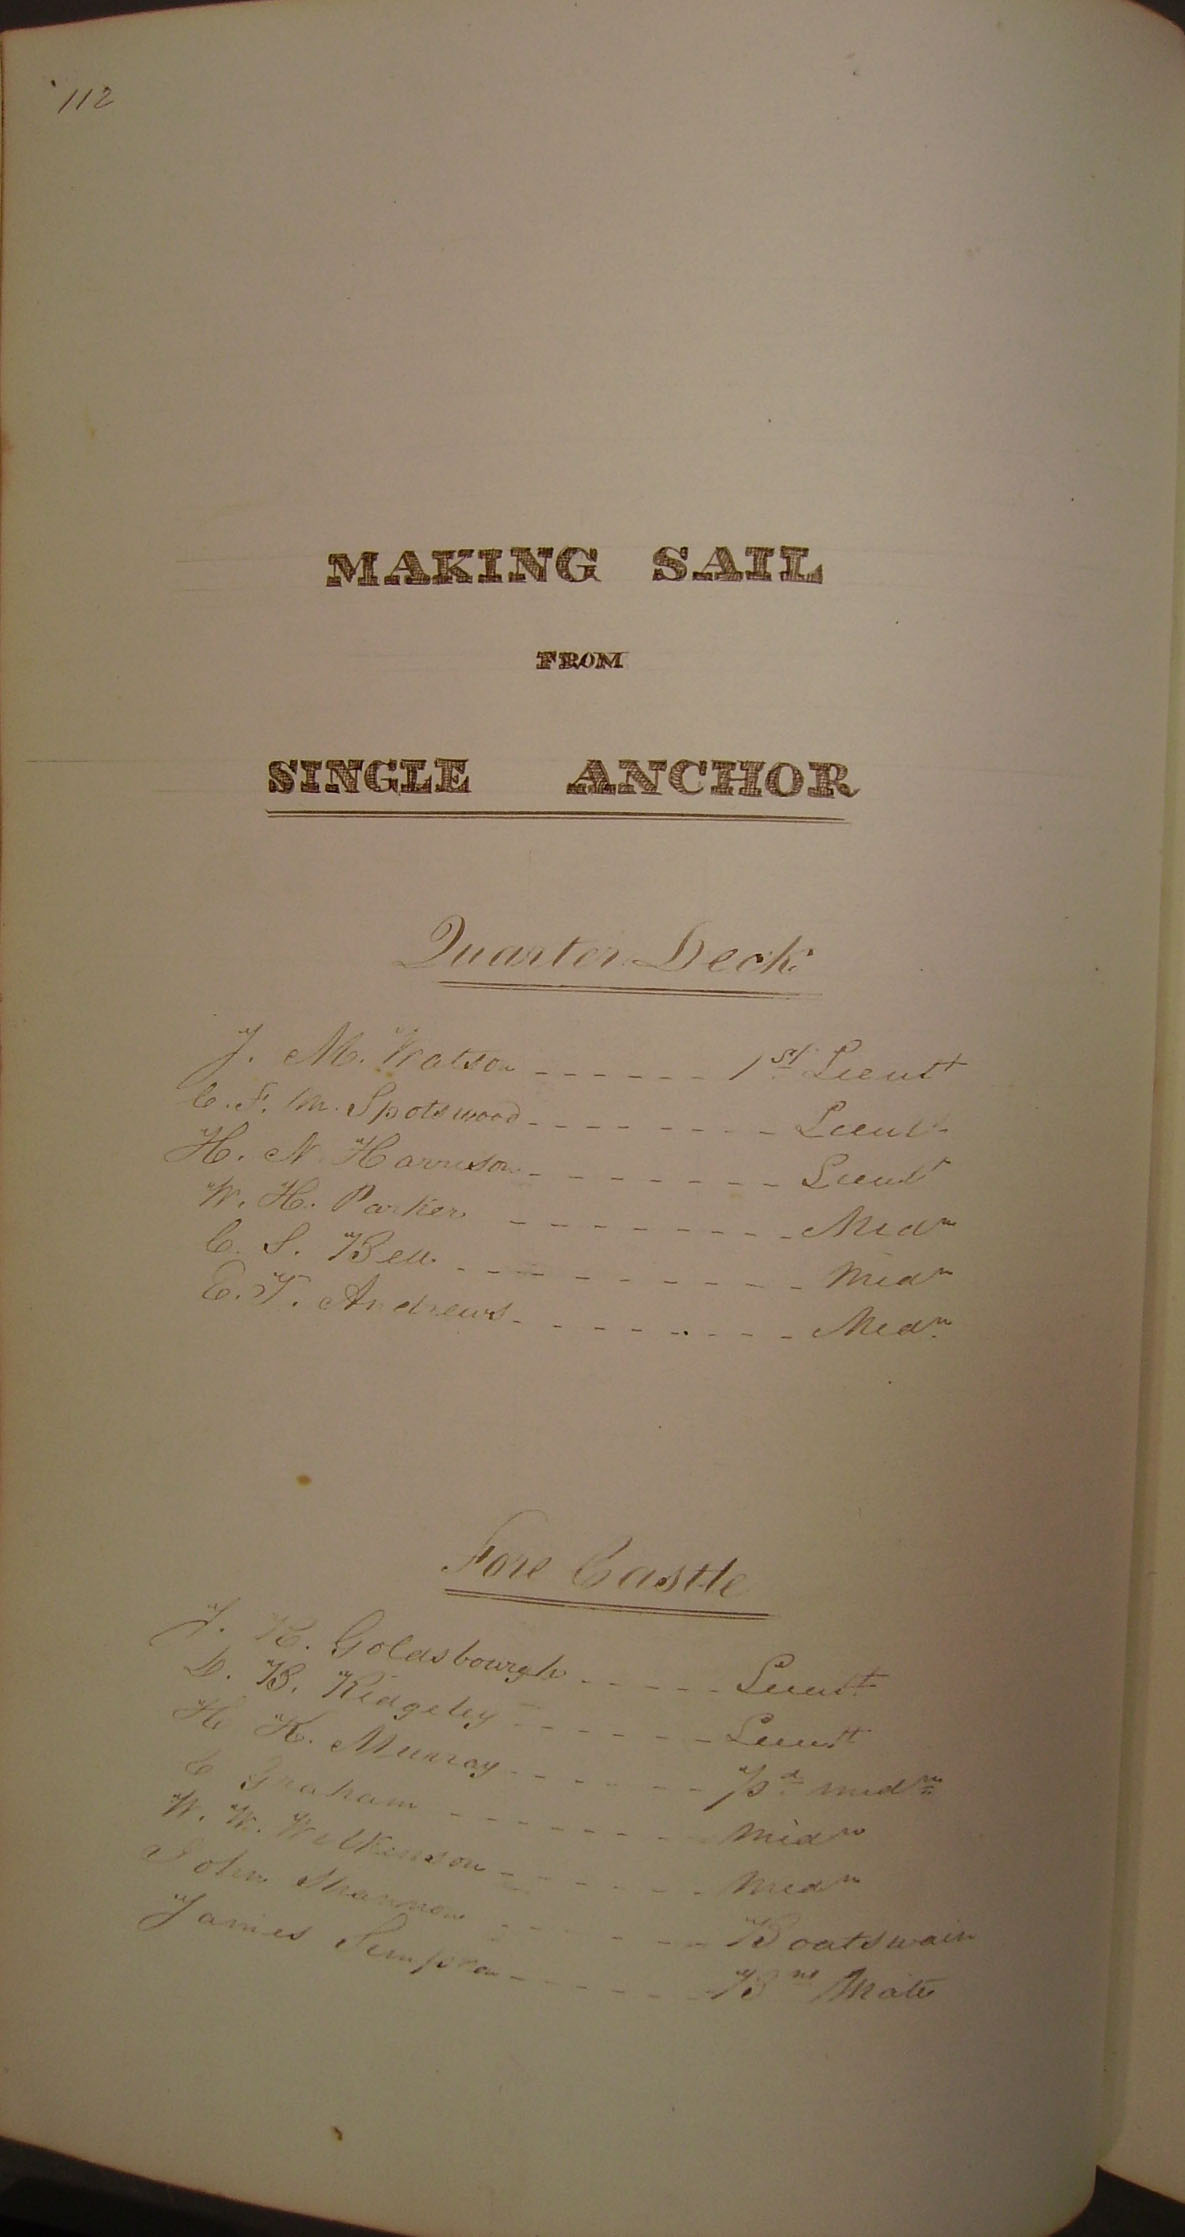 112
MAKING SAIL
FROM
SINGLE ANCHOR
Quarter Deck
J. M. Watson ------ 1st Lieutt
C. F. M. Spotswood -------- Lieut
H. N. Harrison ------- Lieut
W. H. Parker -------- Midn
C. S. Bell --------- Midn
E. T. Andrews -------- Midn
Fore Castle
J. R. Goldsbourgh ----- Lieutt
D. B. Ridgeley ------ Lieutt
H. K. Murray ------ Pd Midn
C Graham ------- Midn
W. W. Wilkinson ------ Midn
John Shannon ------ Boatswain
James Simpson ------ Bns Mate